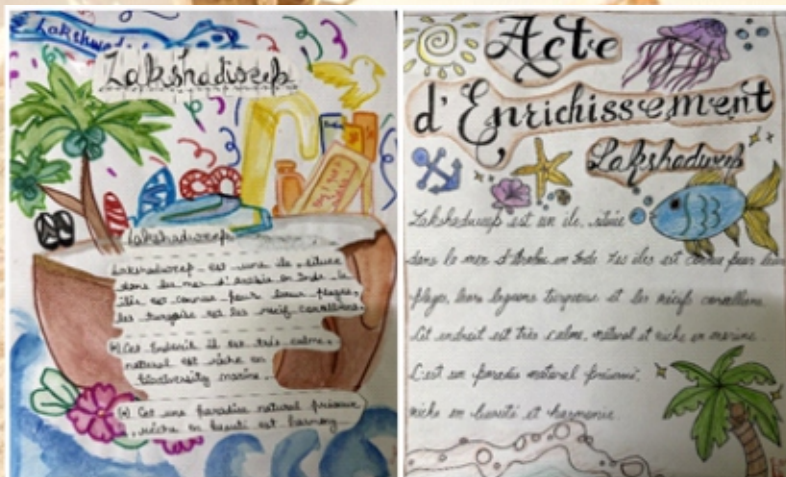 Lakshadweep
Lakshadweep
lakshadweep
Lakshadweep est une île, située
dans la mer d'Arabie en Inde. le
îles est connue pour leur plages,
les turquoise est les récif coralliens.
Cet Endroit il est très calme,
naturel est riche en
biodiversity marine.
Cet une paradise naturel préservé
, riche en beauti est harmony
Acte
d'Enrichissement
Lakshadweep
Lakshadweep est un ile, située
dans la mer d'Arabie en Inde Les iles est connue pour leur
plages, leurs lagunes turquoise et les récifs coralliens.
Cet endroit est très calme, naturel et riche en marine.
C'est un paradis naturel préservé,
riche en beauté et harmonie.